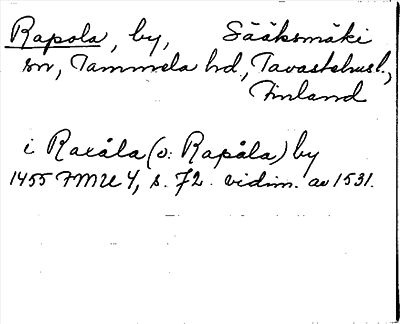 Rapola, by, Sääksmäki
sn, Tammela hd., Tavastehusl.,
Finland
i Raxåla (ɔ: Rapåla) by
1455 FMU 4, s. 72. vidim. av 1531.